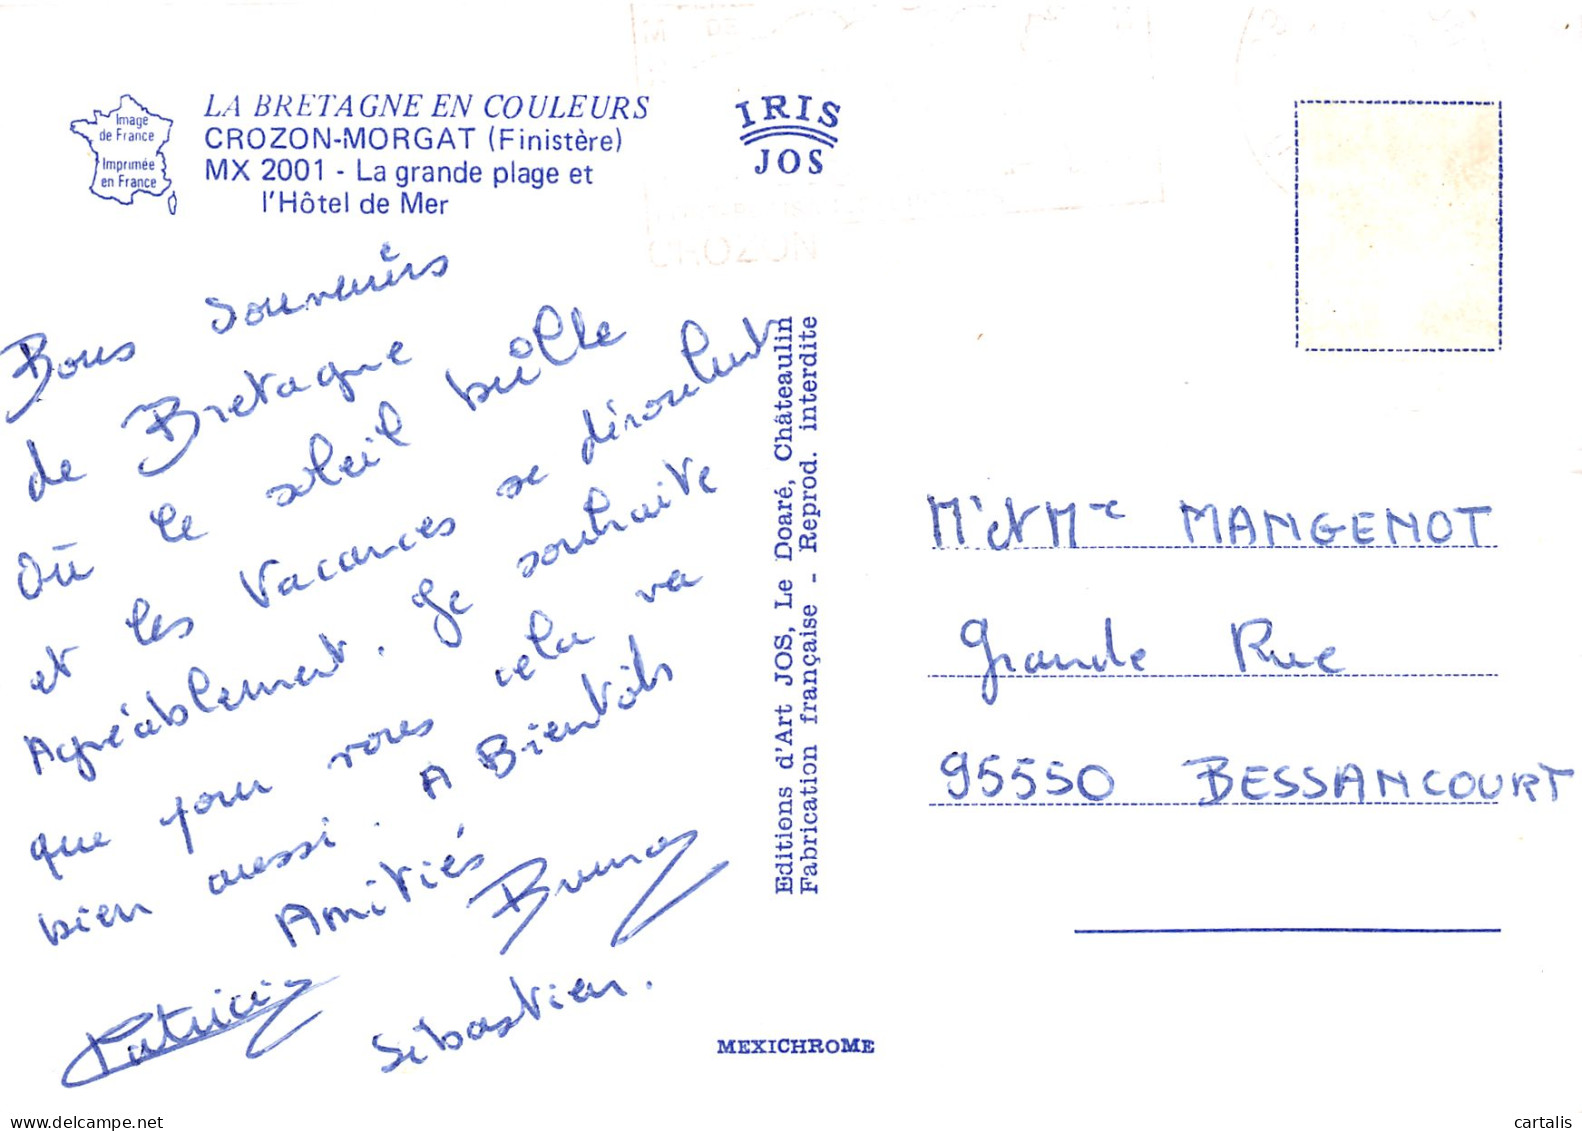 Image
de France
Imprimée
en France
LA BRETAGNE EN COULEURS
CROZON-MORGAT (Finistère)
MX 2001 - La grande plage et
l'Hôtel de Mer
IRIS
JOS
CROZON
Bons souvenirs
de Bretagne
Où le soleil brille
et les Vacances se déroulent
Agréablement. Je souhaite
que pour vous cela va
bien aussi. A Bientôts
Amitiés
Bruno
Patricia
Sébastien.
Editions d'Art JOS, Le Doaré, Châteaulin
Fabrication française - Reprod. interdite
Mr et Mme MANGENOT
Grande Rue
95550 BESSANCOURT
MEXICHROME
delcampe.net
cartalis